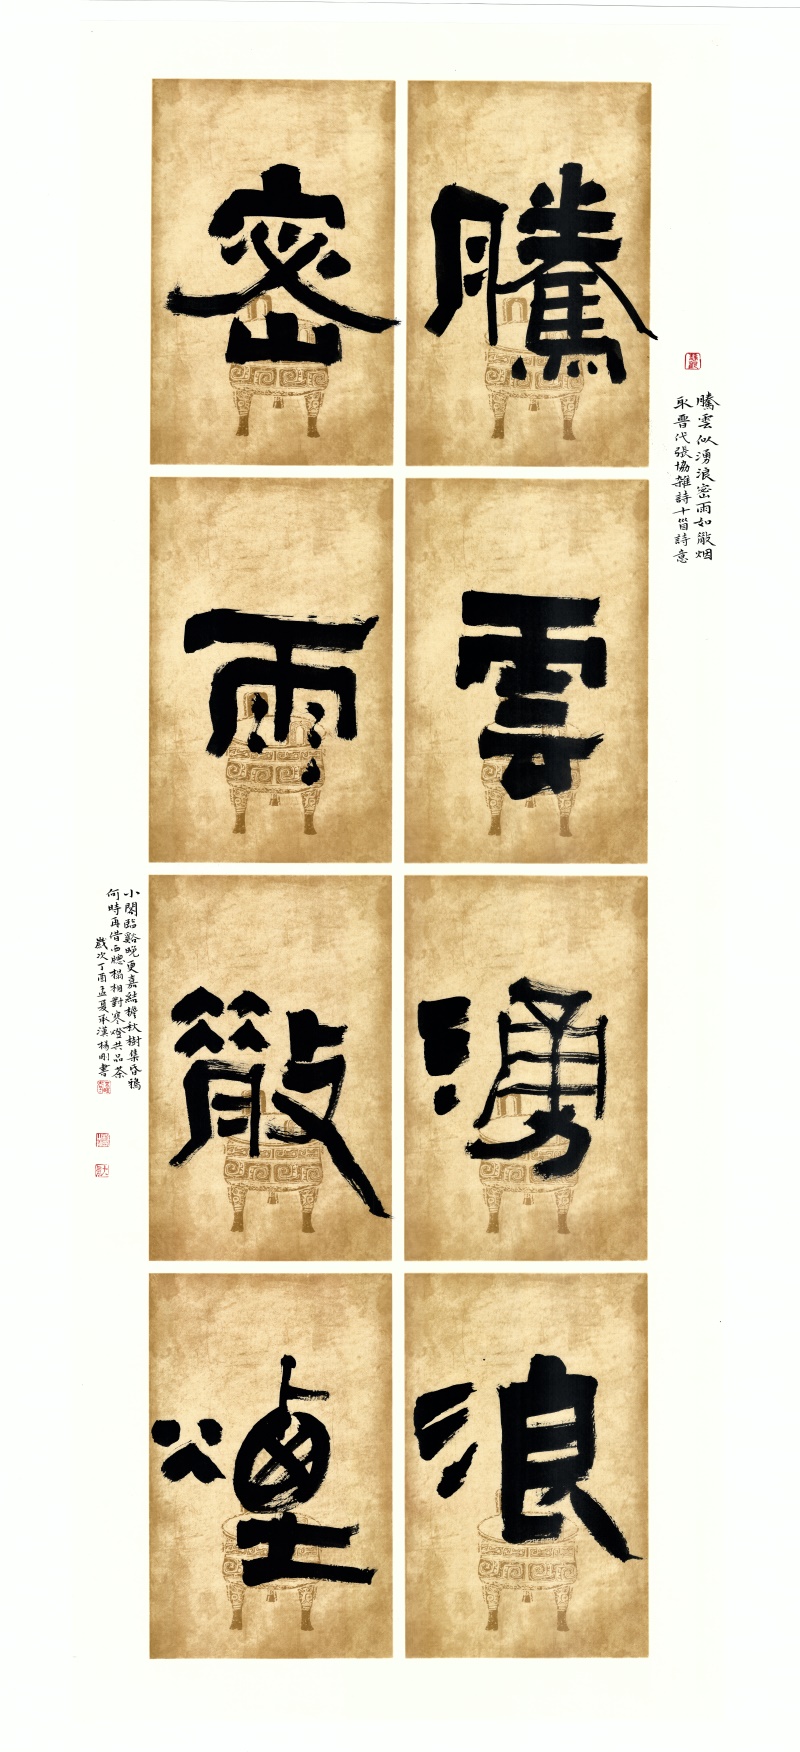 騰雲湧浪
密雨散煙
騰雲似湧浪密雨如散烟
取晋代張協雜詩十首詩意
小閣臨谿晚更嘉結檐秋樹集昏鴉
何時再借西牕榻相對寒燈共品茶
歲次丁酉孟夏承漢楊刚書